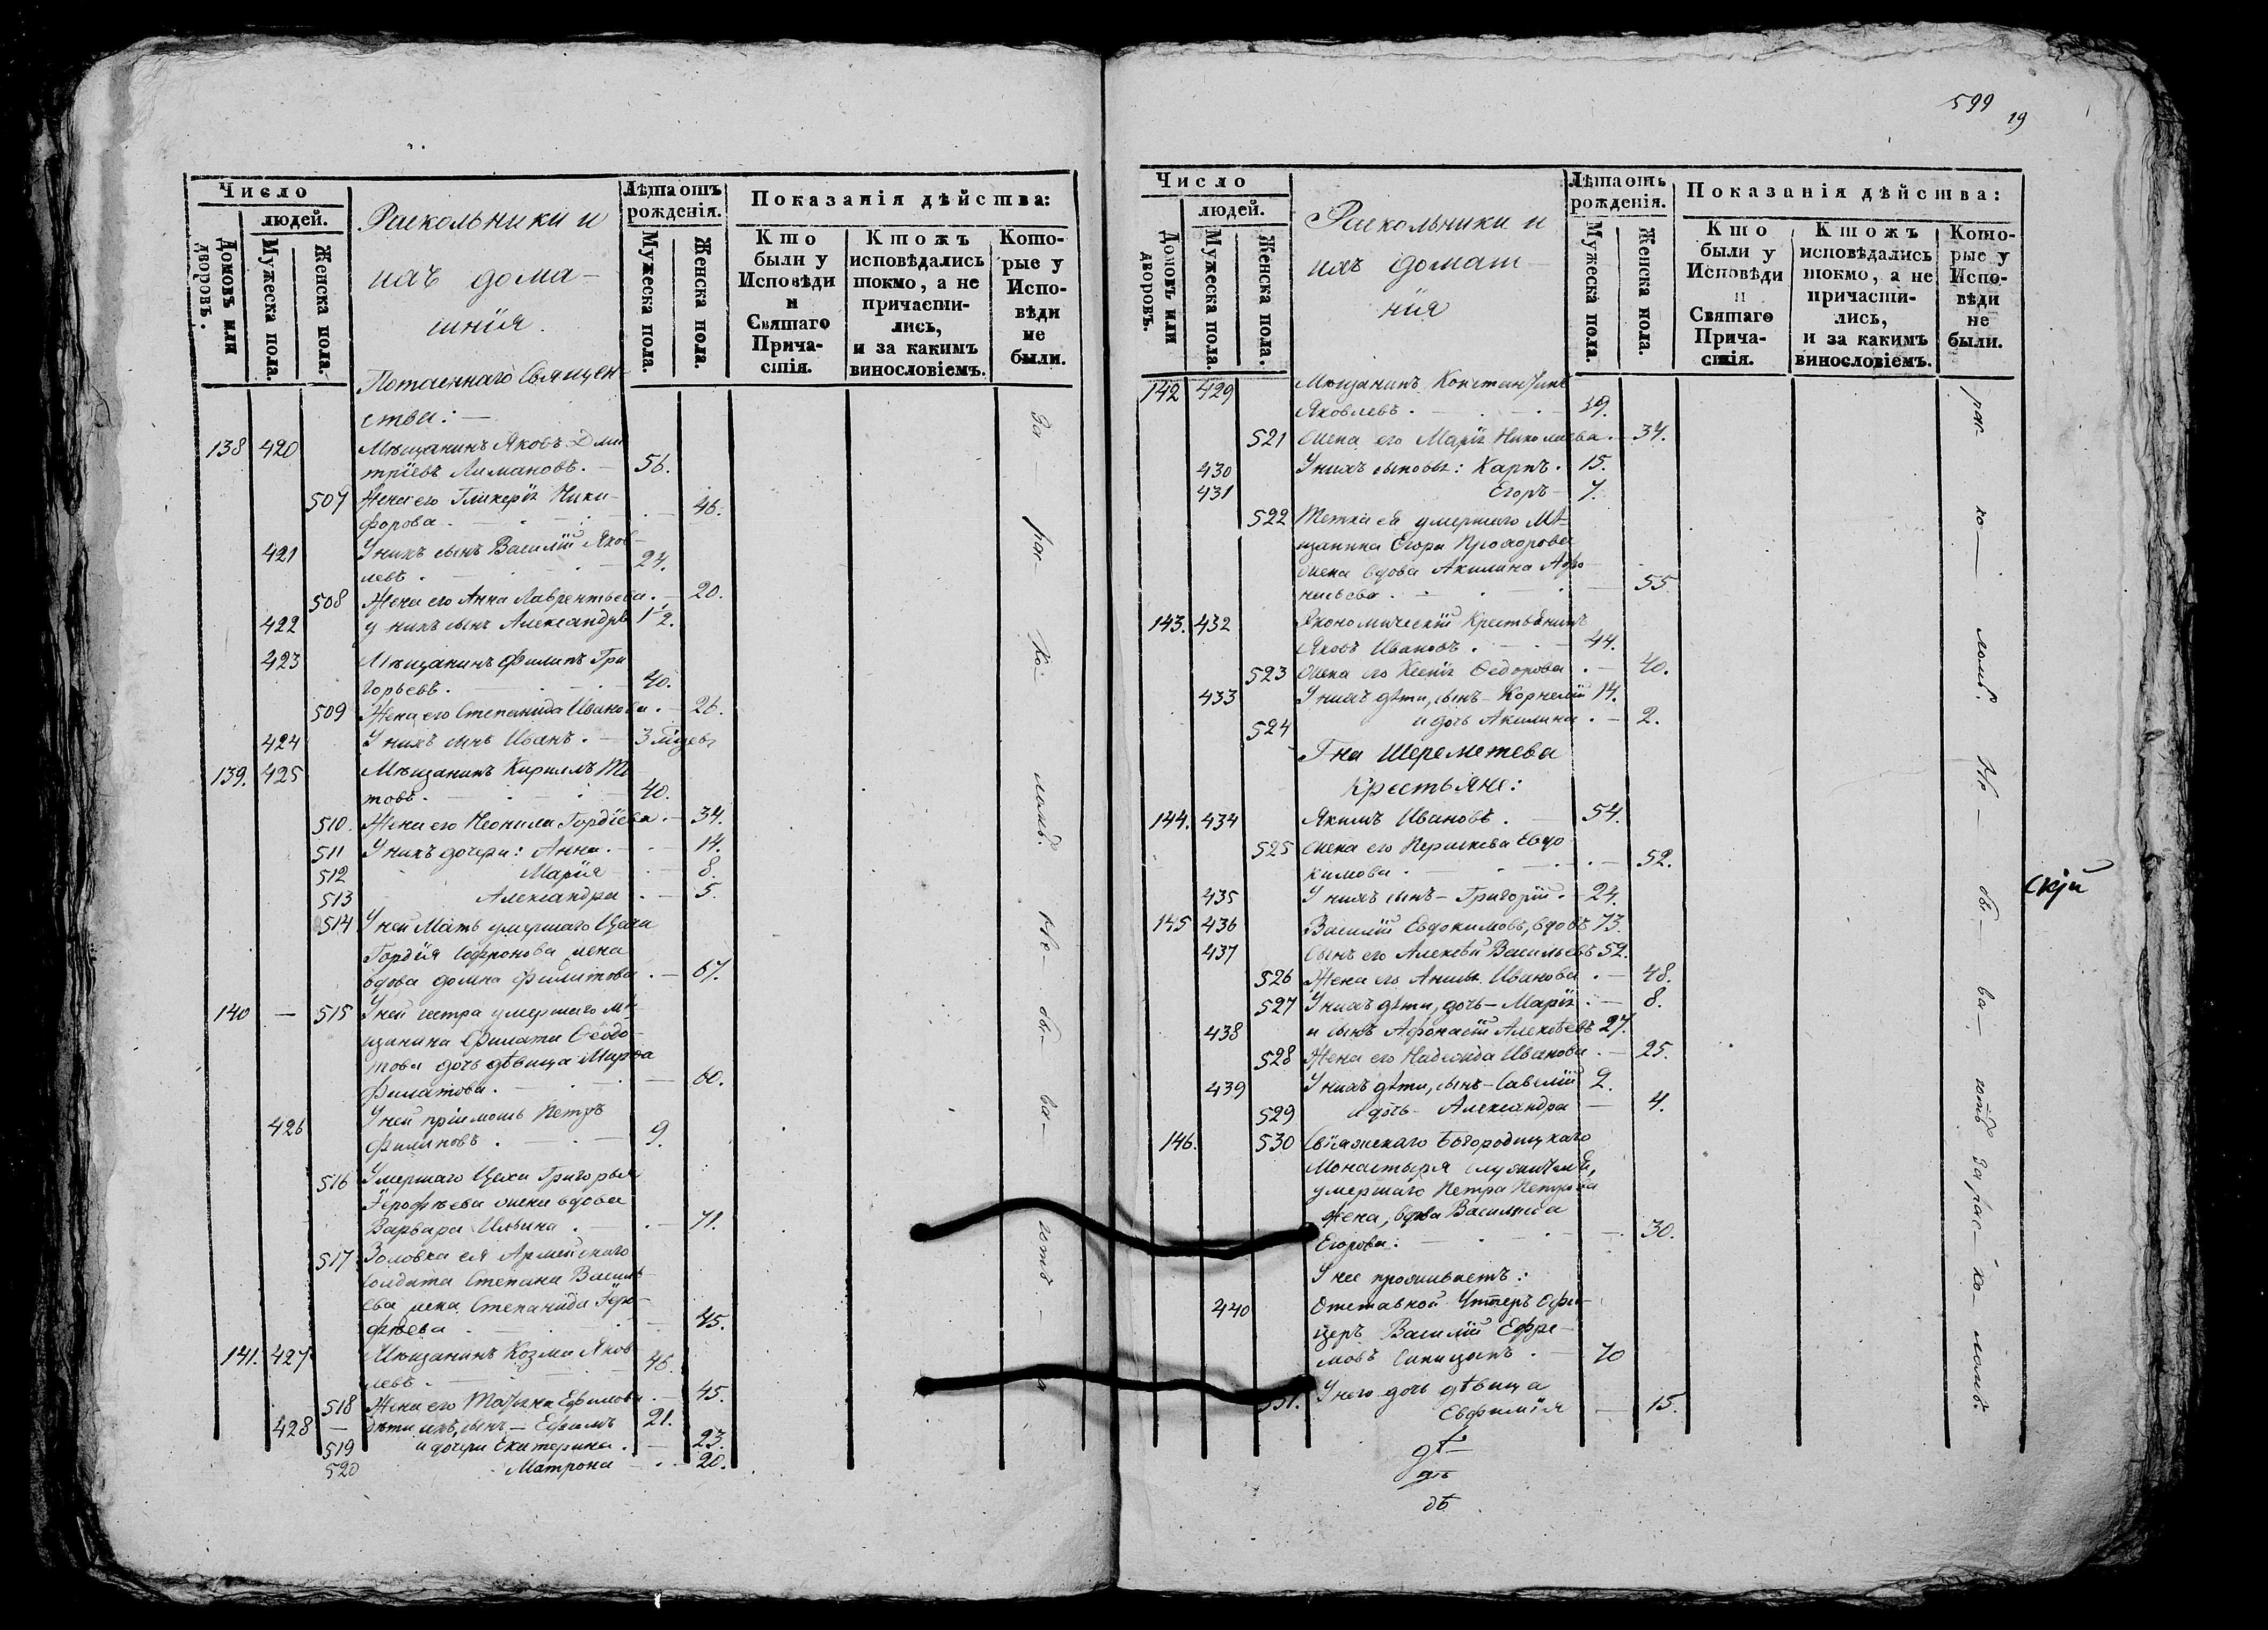 Число
людей.
Домовъ или дворовъ.
Мужеска пола.
Женска пола.
Раскольники и
ихъ дома-
шнія.
Лѣта отъ
рожденія.
Мужеска пола.
Женска пола.
Показанія дѣйства:
Кто были у Исповѣди и Святаго Прича-стія.
Ктожъ исповѣдались токмо, а не причасти-лись, и за какимъ винословіемъ.
Кото-рые у Испо-вѣди не были.
Потаеннаго Священ-
ства:
138 420 Мѣщанинъ Яковъ Дми
тріевъ Лимановъ. 56.
507 Жена его Гликерія Ники-
форова. 46.
421 У нихъ сынъ Василій Яков-
левъ. 24.
508 Жена его Анна Лаврентьева. 20.
422 у нихъ сынъ Александръ 1/2.
423 Мѣщанинъ Филипъ Гри
горьевъ. 40.
509 Жена его Степанида Иванова. 26.
424 У нихъ сынъ Иванъ. 3 мѣцевъ
139. 425 Мѣщанинъ Кириллъ Ти
товъ. 40.
510. Жена его Неонила Гордіева. 34.
511 У нихъ дочери: Анна. 14.
512 Марія 8.
513 Александра 5.
514 У ней Мать умершаго Цеха
Гордія Софронова жена
вдова Домна Филипова 67.
140 — 515 У ней сестра умершаго Мѣ-
щанина Филата Ѳедо-
това дочь дѣвица Марѳа
Филатова. 60.
426 У ней пріимошъ Петръ
Филиповъ. 9.
516 Умершаго Цеха Григорья
Ерофѣева жена вдова
Варвара Ильина. 71.
517 Золовка ея Армейскаго
солдата Степана Василь-
ева жена Степанида Еро-
фѣева 45.
141. 427 Мѣщанинъ Козма Яков
левъ. 46.
518 Жена его Татьяна Ефимова. 45.
428 — Дѣти ихъ, сынъ — Ефимъ 21.
519 и дочери Екатерина. 23.
520 Матрона 20.
За рас-ко-ломъ. Не об-ва-
599
19
Число
людей.
Домовъ или дворовъ.
Мужеска пола.
Женска пола.
Раскольники и
ихъ домаш-
нія
Лѣта отъ
рожденія.
Мужеска пола.
Женска пола.
Показанія дѣйства:
Кто были у Исповѣди и Святаго Прича-стія.
Ктожъ исповѣдались токмо, а не причасти-лись, и за какимъ винословіемъ.
Кото-рые у Испо-вѣди не были.
142 429 Мѣщанинъ Константинъ
Яковлевъ. 39.
521 Жена его Марія Николаева. 34.
430 У нихъ сыновья: Карпъ. 15.
431 Егоръ 7.
522 Тетка ея умершаго Мѣ-
щанина Егора Прохорова
жена вдова Акилина Афо-
насьева. 55.
143. 432 Экономическій Крестьянинъ
Яковъ Ивановъ. 44.
523 Жена его Ксенія Ѳедорова. 40.
433 У нихъ дѣти, сынъ — Корнелій 14.
524 и дочь Акилина. 2.
Гна Шереметева
Крестьяне:
144. 434 Якимъ Ивановъ. 54.
525 Жена его Перасковья Евдо
кимова. 52.
435 У нихъ сынъ — Григорій. 24.
145 436 Василій Евдокимовъ, вдовъ 73.
437 Сынъ его Алексѣй Васильевъ 52.
526 Жена его Анисья Иванова. 48.
527 У нихъ дѣти, дочь — Марія. 8.
438 и сынъ Афонасій Алексѣевъ 27.
528 Жена его Надежда Иванова. 25.
439 У нихъ дѣти, сынъ — Савелій 2.
529 и дочь — Александра 4.
146. 530 Свіяжскаго Богородицкаго
Монастыря служителя,
умершаго Петра Петрова
жена, вдова Василиса
Егорова. 30.
У нее проживаетъ:
440 Отставной Унтеръ Офи-
церъ Василій Ефре-
мовъ Синицынъ. 70
531. У него дочь дѣвица
Евфимія 15.
рас-ко-ломъ. Не об-ва- За рас-ко-ломъ.
скій